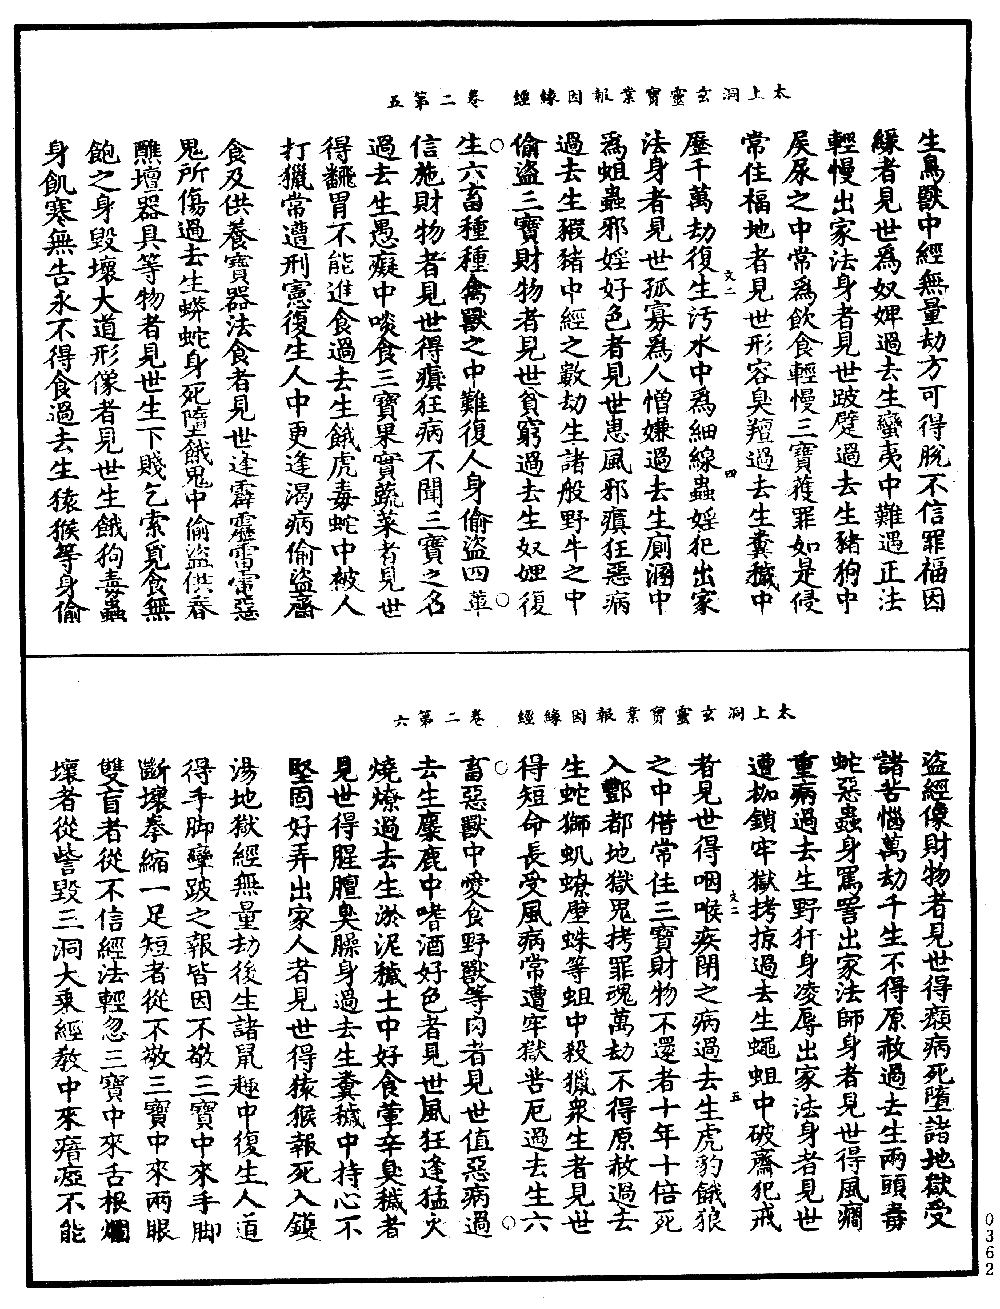 太上洞玄靈寶業報因緣經 卷二第五
生鳥獸中經無量劫方可得脫不信罪福因
緣者見世為奴婢過去生蠻夷中難遇正法
輕慢出家法身者見世跛躄過去生豬狗中
屎尿之中常為飲食輕慢三寶獲罪如是侵
常住福地者見世形容臭羶過去生糞穢中
歷千萬劫復生汚水中為細線蟲婬犯出家
法身者見世孤寡為人憎嫌過去生廁溷中
為蛆蟲邪婬好色者見世患風邪癲狂惡病
過去生豭豬中經之數劫生諸般野牛之中
偷盜三寶財物者見世貧窮過去生奴婢復
生六畜種種禽獸之中難復人身偷盜四輩
信施財物者見世得癲狂病不聞三寶之名
過去生愚癡中啖食三寶果實蔬菜者見世
得翻胃不能進食過去生餓虎毒蛇中被人
打獵常遭刑憲復生人中更逢渴病偷盜齋
食及供養寶器法食者見世逢霹靂雷電惡
鬼所傷過去生蟒蛇身死墮餓鬼中偷盜供養
醮壇器具等物者見世生下賤乞索覓食無
飽之身毀壞大道形像者見世生餓狗毒蟲
身飢寒無告永不得食過去生猿猴等身偷
文二 四
太上洞玄靈寶業報因緣經 卷二第六
盜經像財物者見世得癩病死墮諸地獄受
諸苦惱萬劫千生不得原赦過去生兩頭毒
蛇惡蟲身罵詈出家法師身者見世得風癇
重病過去生野犴身凌辱出家法身者見世
遭枷鎖牢獄拷掠過去生蠅蛆中破齋犯戒
者見世得咽喉疾閉之病過去生虎豹餓狼
之中借常住三寶財物不還者十年十倍死
入酆都地獄鬼拷罪魂萬劫不得原赦過去
生蛇獅虮蟟壁蛛等蛆中殺獵眾生者見世
得短命長受風病常遭牢獄苦厄過去生六
畜惡獸中愛食野獸等肉者見世值惡病過
去生麋鹿中嗜酒好色者見世風狂逢猛火
燒燎過去生淤泥穢土中好食葷辛臭穢者
見世得腥膻臭臊身過去生糞穢中持心不
堅固好弄出家人者見世得猿猴報死入鑊
湯地獄經無量劫後生諸鼠趣中復生人道
得手脚攣跛之報皆因不敬三寶中來手脚
斷壞拳縮一足短者從不敬三寶中來兩眼
雙盲者從不信經法輕忽三寶中來舌根爛
壞者從訾毀三洞大乘經教中來瘖瘂不能
文二 五
0362